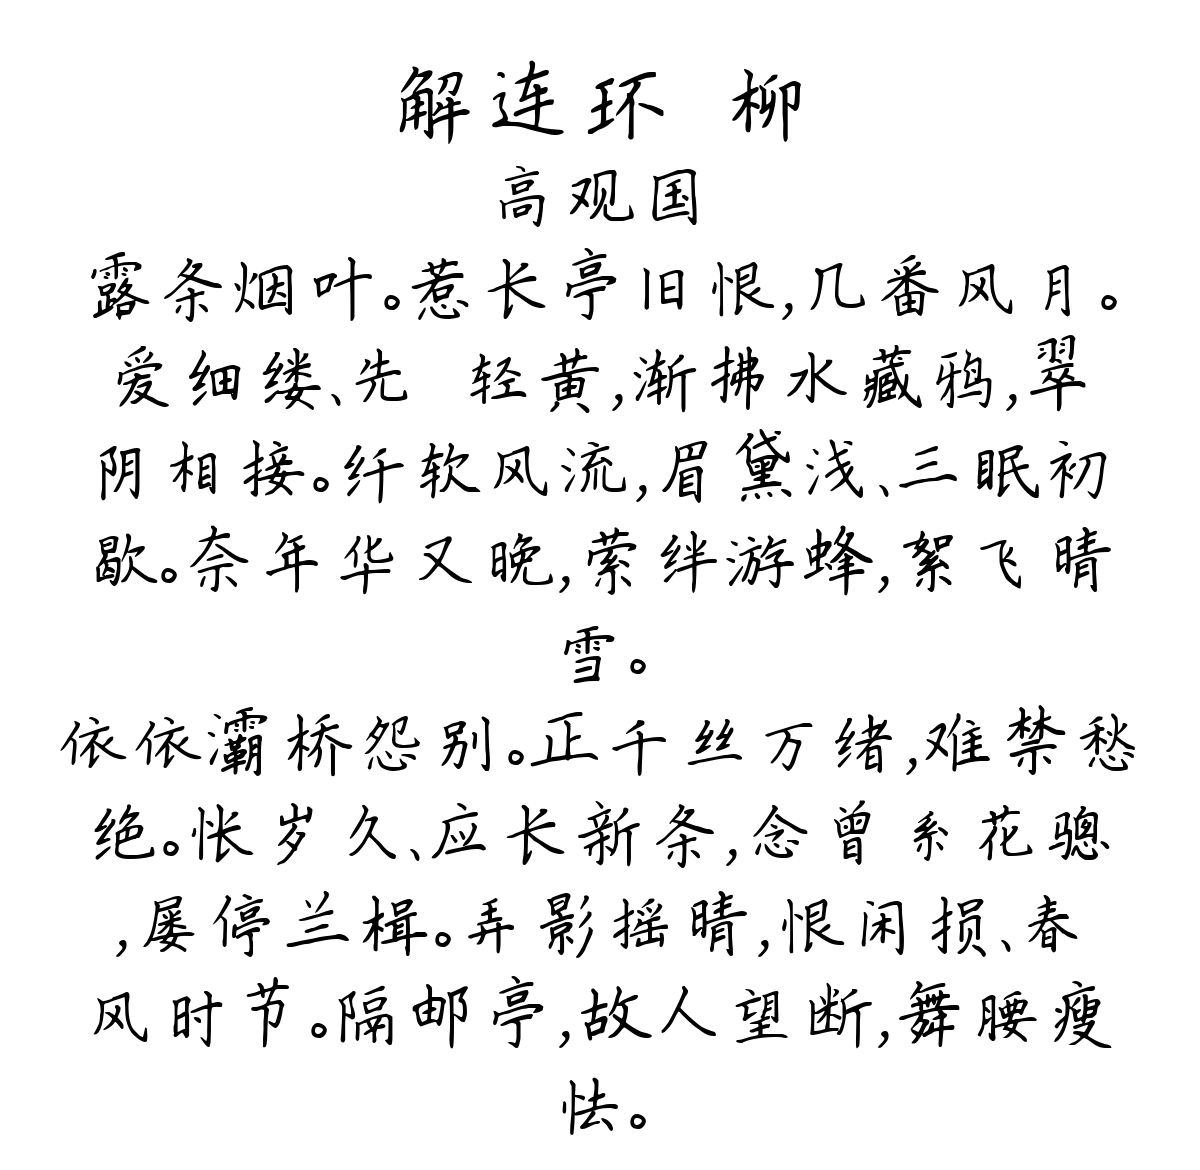 解连环 柳
高观国
露条烟叶。惹长亭旧恨,几番风月。
爱细缕、先 轻黄,渐拂水藏鸦,翠
阴相接。纤软风流,眉黛浅、三眠初
歇。奈年华又晚,萦绊游蜂,絮飞晴
雪。
依依灞桥怨别。正千丝万绪,难禁愁
绝。怅岁久、应长新条,念曾系花骢
,屡停兰楫。弄影摇晴,恨闲损、春
风时节。隔邮亭,故人望断,舞腰瘦
怯。